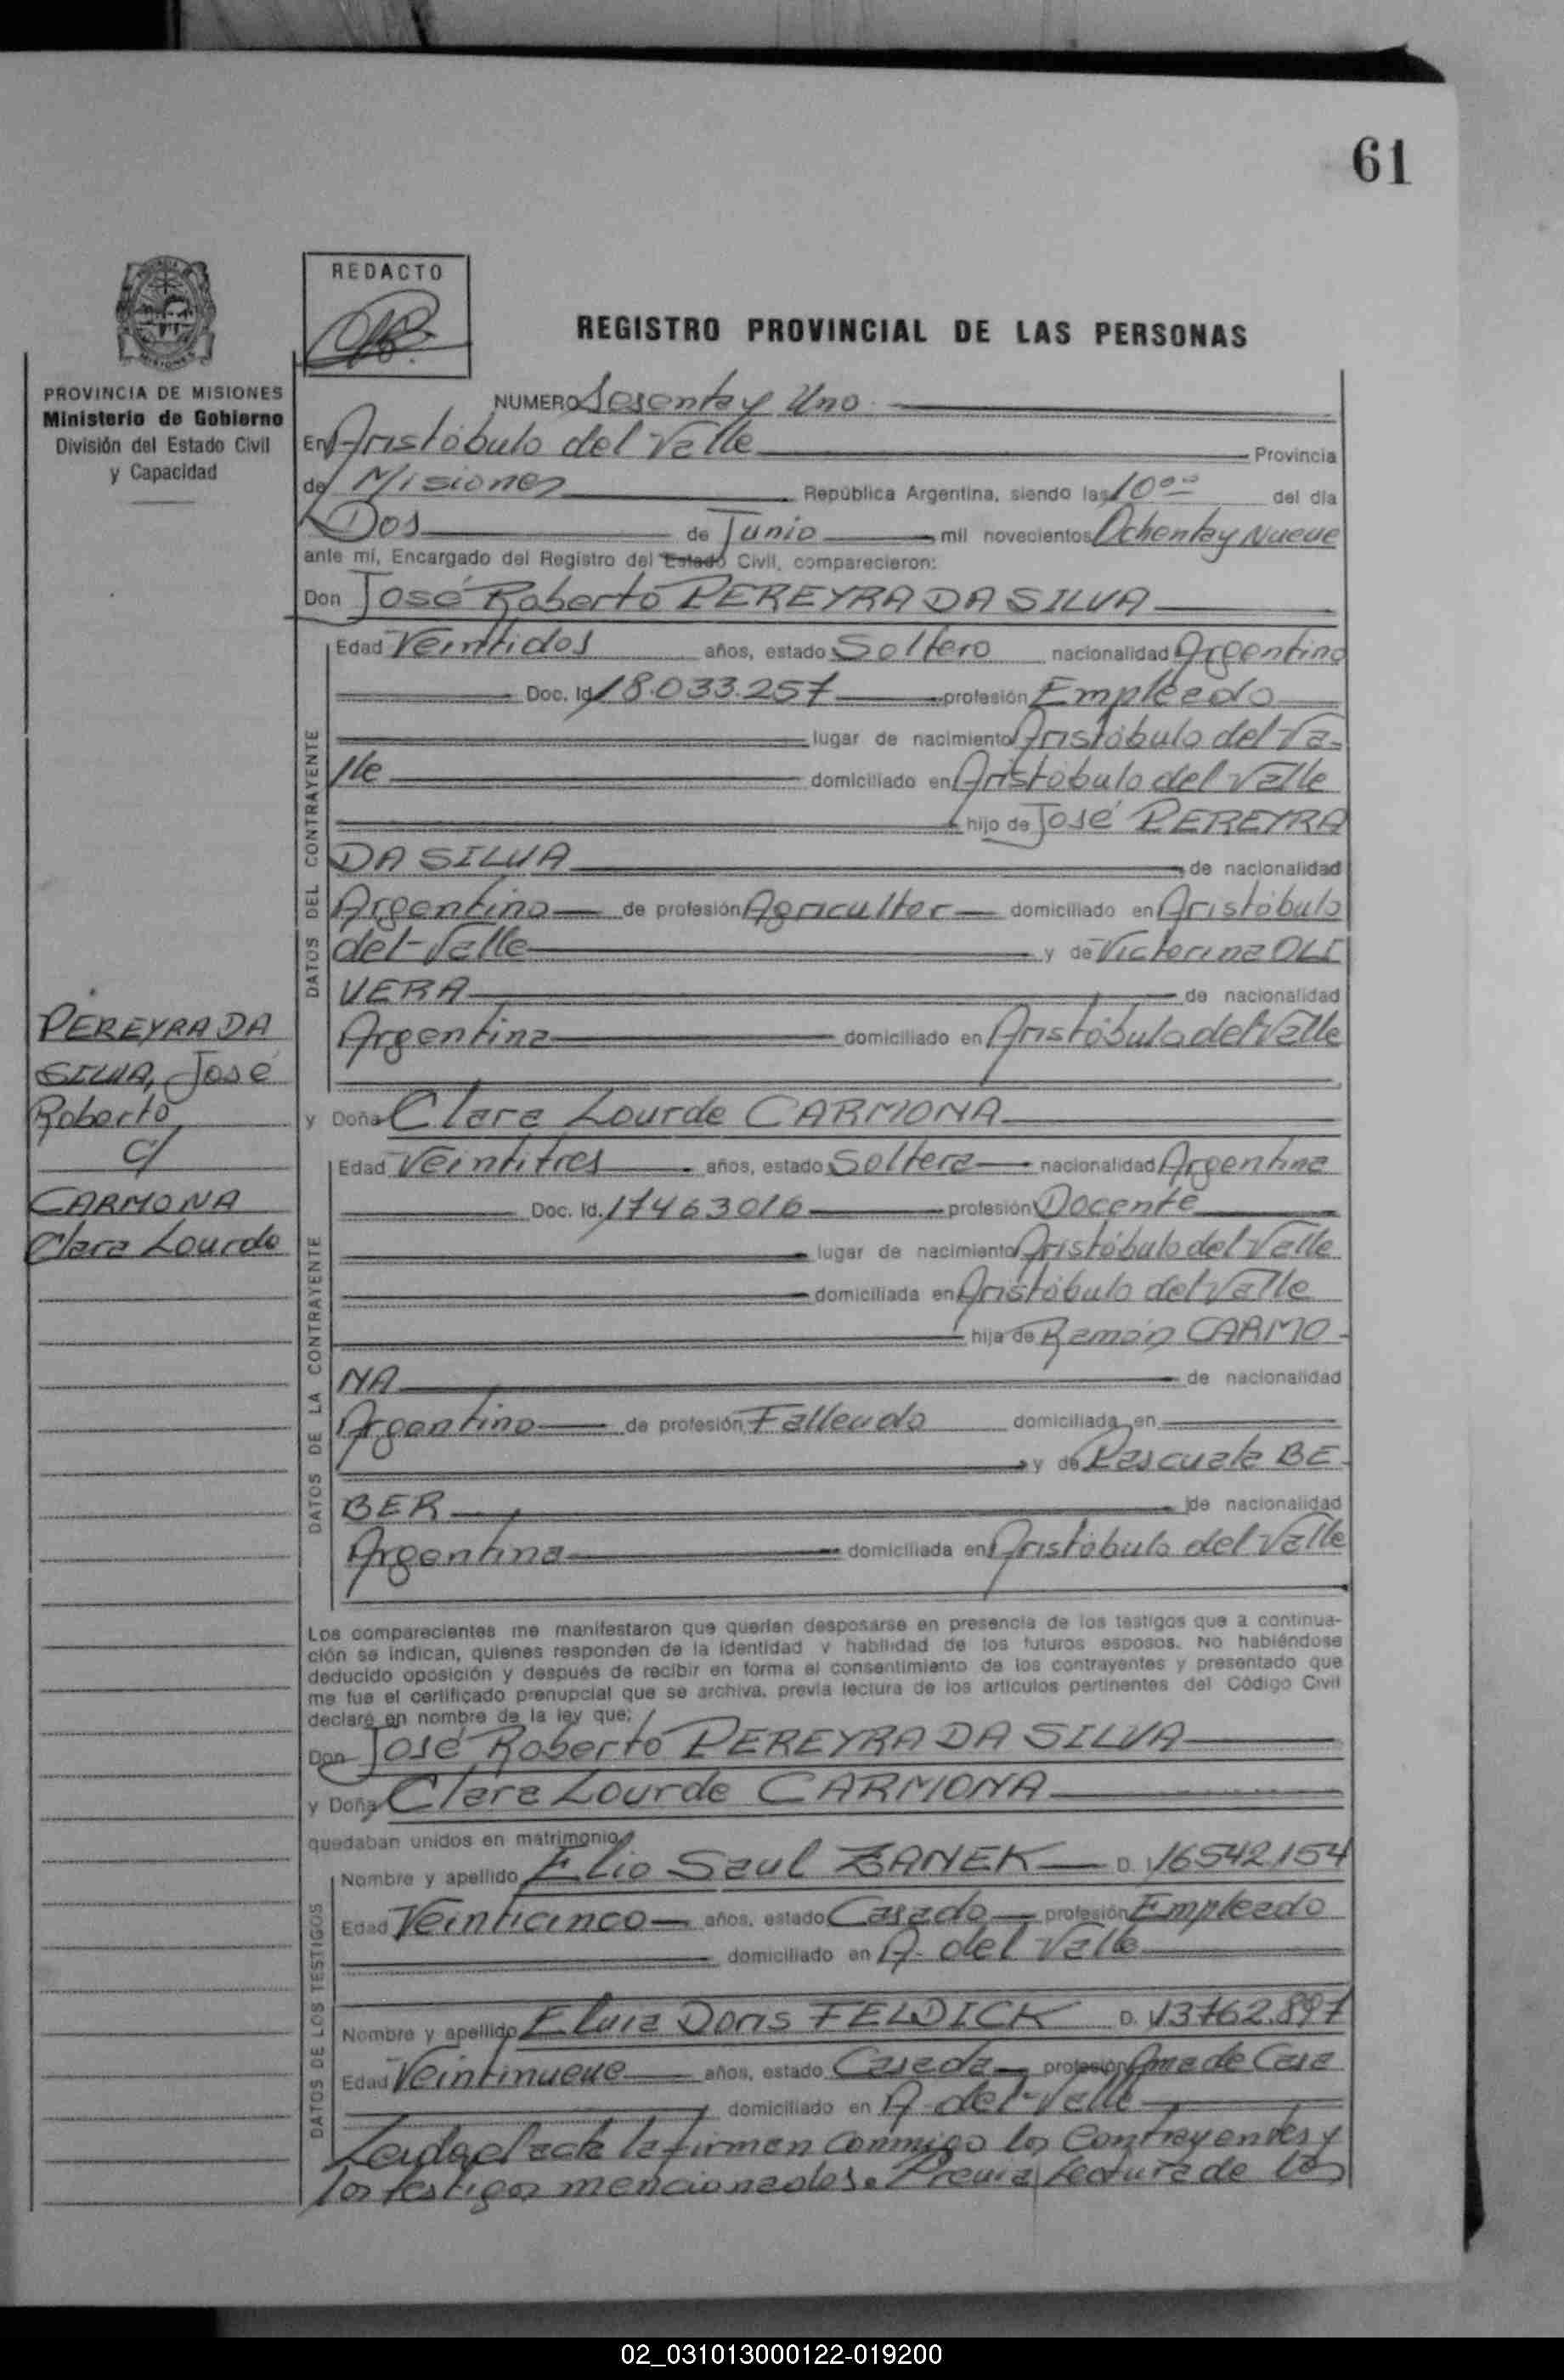 61
REDACTO
REGISTRO PROVINCIAL DE LAS PERSONAS
PROVINCIA DE MISIONES
Ministerio de Gobierno
División del Estado Civil
y Capacidad
NUMERO Sesenta y Uno
En Aristóbulo del Valle Provincia
de Misiones República Argentina, siendo las 10°° del día
Dos de Junio mil novecientos Ochenta y Nueve
ante mí, Encargado del Registro del Estado Civil, comparecieron:
Don José Roberto PEREYRA DA SILVA
DATOS DEL CONTRAYENTE
Edad Veintidos años, estado Soltero nacionalidad Argentino
Doc. Id. 18.033.257 profesión Empleado
lugar de nacimiento Aristóbulo del Va-
lle domiciliado en Aristóbulo del Valle
hijo de José PEREYRA
DA SILVA de nacionalidad
Argentino de profesión Agricultor domiciliado en Aristóbulo
del Valle y de Victorina OLI
VERA de nacionalidad
Argentina domiciliado en Aristóbulo del Valle
PEREYRA DA
SILVA, José
Roberto
c/
CARMONA
Clara Lourde
y Doña Clara Lourde CARMONA
DATOS DE LA CONTRAYENTE
Edad Veintitres años, estado Soltera nacionalidad Argentina
Doc. Id. 17463016 profesión Docente
lugar de nacimiento Aristóbulo del Valle
domiciliada en Aristóbulo del Valle
hija de Ramón CARMO-
NA de nacionalidad
Argentino de profesión Fallecido domiciliada en
y de Pascuala BE-
BER de nacionalidad
Argentina domiciliada en Aristóbulo del Valle
Los comparecientes me manifestaron que querían desposarse en presencia de los testigos que a continua-
ción se indican, quienes responden de la identidad y habilidad de los futuros esposos. No habiéndose
deducido oposición y después de recibir en forma el consentimiento de los contrayentes y presentado que
me fue el certificado prenupcial que se archiva, previa lectura de los artículos pertinentes del Código Civil
declaré en nombre de la ley que:
Don José Roberto PEREYRA DA SILVA
y Doña Clara Lourde CARMONA
quedaban unidos en matrimonio
DATOS DE LOS TESTIGOS
Nombre y apellido Elio Saul ZANEK D. 16542.154
Edad Veinticinco años, estado Casado profesión Empleado
domiciliado en A. del Valle
Nombre y apellido Elvia Doris FELDICK D. 13762.897
Edad Veintinueve años, estado Casada profesión Ama de Casa
domiciliado en A. del Valle
Leida el acta la firman conmigo los Contrayentes y
los testigos mencionados. Previa lectura de los
02_031013000122-019200